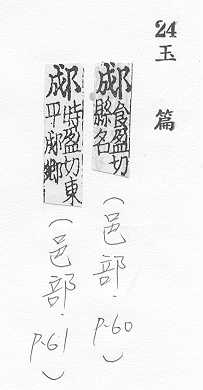 24
玉篇
郕 食盈切
縣名
(邑部.P.60)
郕 時盈切東
平郕鄉
(邑部.P.61)